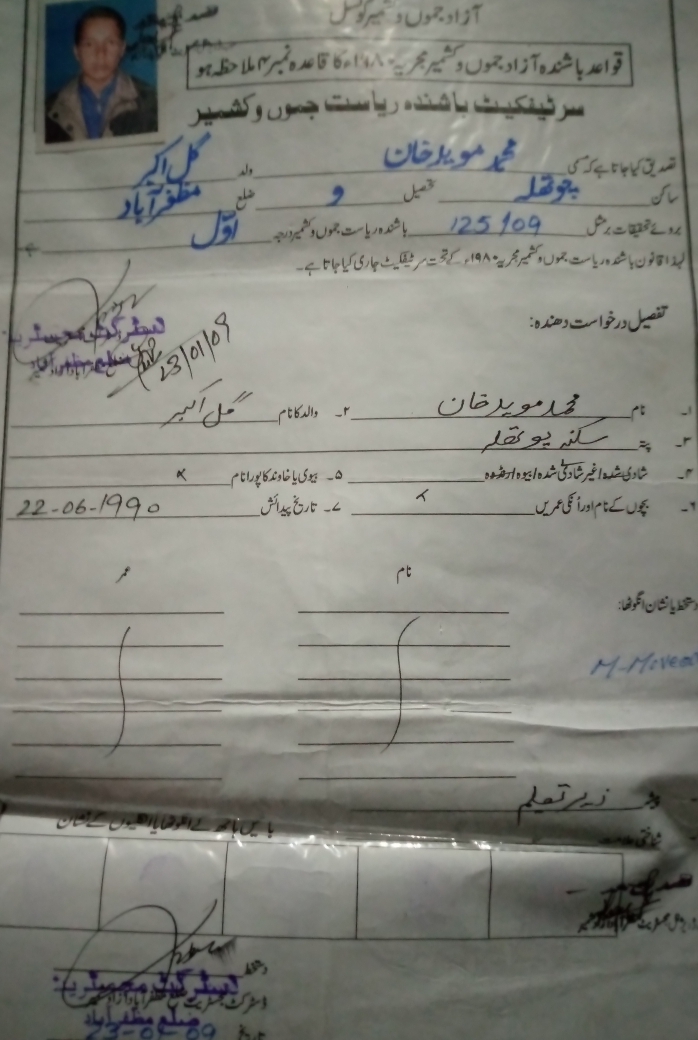 آزاد جموں و کشمیر کونسل
قواعد باشندہ آزاد جموں و کشمیر مجریہ ۱۹۸۰ء کا قاعدہ نمبر ۴ ملاحظہ ہو
سرٹیفکیٹ باشندہ ریاست جموں و کشمیر
تصدیق کیا جاتا ہے کہ مسمی محمد موید خان ولد گل اکبر
ساکن تحصیل و ضلع مظفرآباد
بروئے تحقیقات برمثل 125/09 باشندہ ریاست جموں و کشمیر درجہ اوّل ہے
لہذا قانون باشندہ ریاست جموں و کشمیر مجریہ ۱۹۸۰ء کے تحت سرٹیفکیٹ جاری کیا جاتا ہے۔
تفصیل درخواست دھندہ:
ڈسٹرکٹ مجسٹریٹ
ضلع مظفرآباد
23/01/09
۱۔ نام محمد موید خان ۲۔ والد کا نام گل اکبر
۳۔ پتہ سکنہ
۴۔ شادی شدہ/غیر شادی شدہ/بیوہ/رنڈوہ ۵۔ بیوی یا خاوند کا پورا نام x
۶۔ بچوں کے نام اور اُنکی عمریں x ۷۔ تاریخ پیدائش 22-06-1990
نام عمر
دستخط یا نشان انگوٹھا:
M-Moveed
پیشہ زیر تعلیم
شناختی
بائیں ہاتھ کے انگوٹھا یا انگلیوں کے نشان
دستخط
ڈسٹرکٹ مجسٹریٹ
ڈسٹرکٹ مجسٹریٹ ضلع مظفرآباد آزاد کشمیر
ضلع مظفرآباد
تاریخ 23-01-09